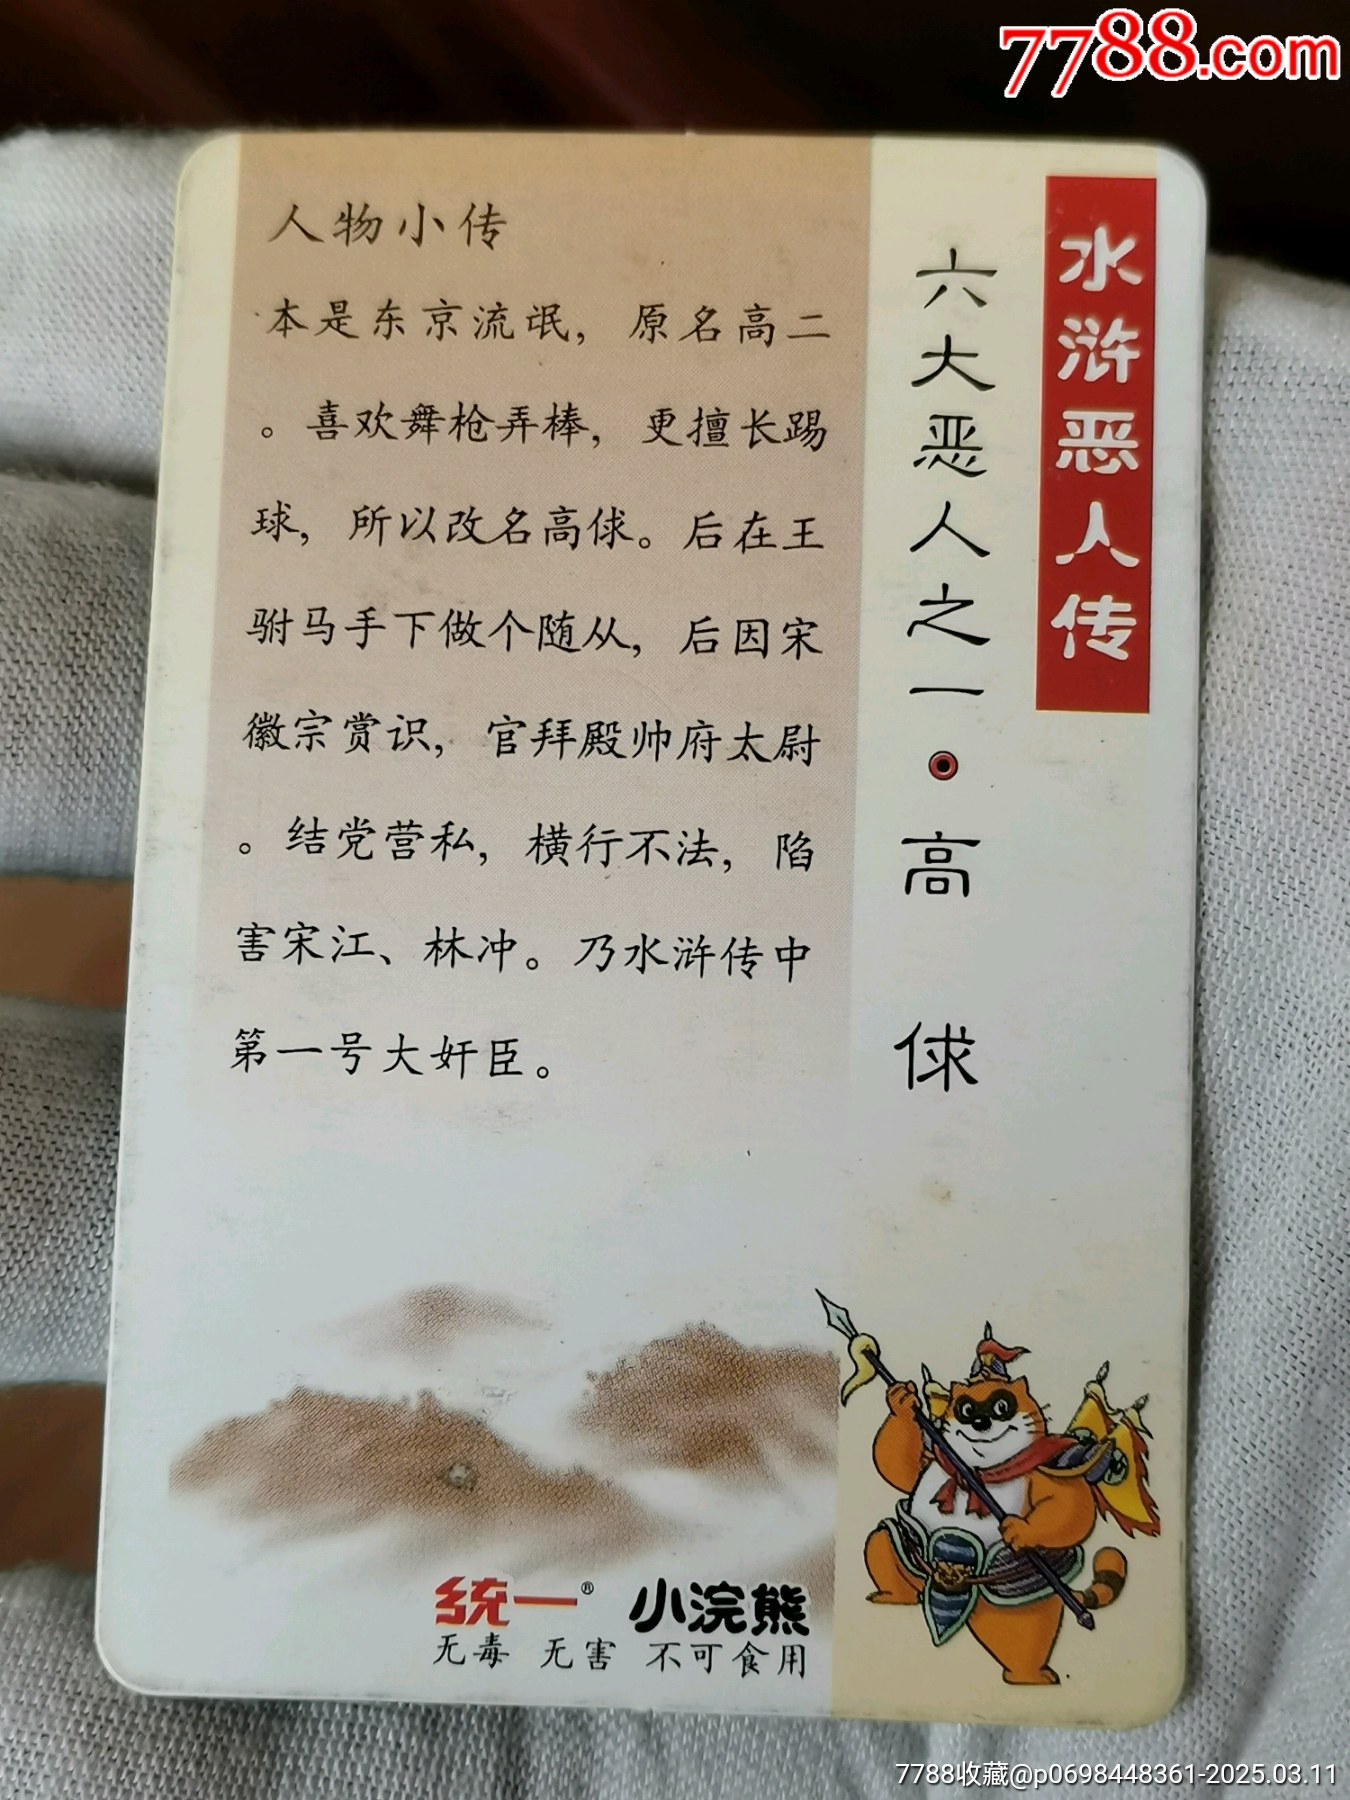 7788.com
水浒恶人传
六大恶人之一·高俅
人物小传
本是东京流氓，原名高二
。喜欢舞枪弄棒，更擅长踢
球，所以改名高俅。后在王
驸马手下做个随从，后因宋
徽宗赏识，官拜殿帅府太尉
。结党营私，横行不法，陷
害宋江、林冲。乃水浒传中
第一号大奸臣。
统一® 小浣熊
无毒 无害 不可食用
7788收藏@p0698448361-2025.03.11